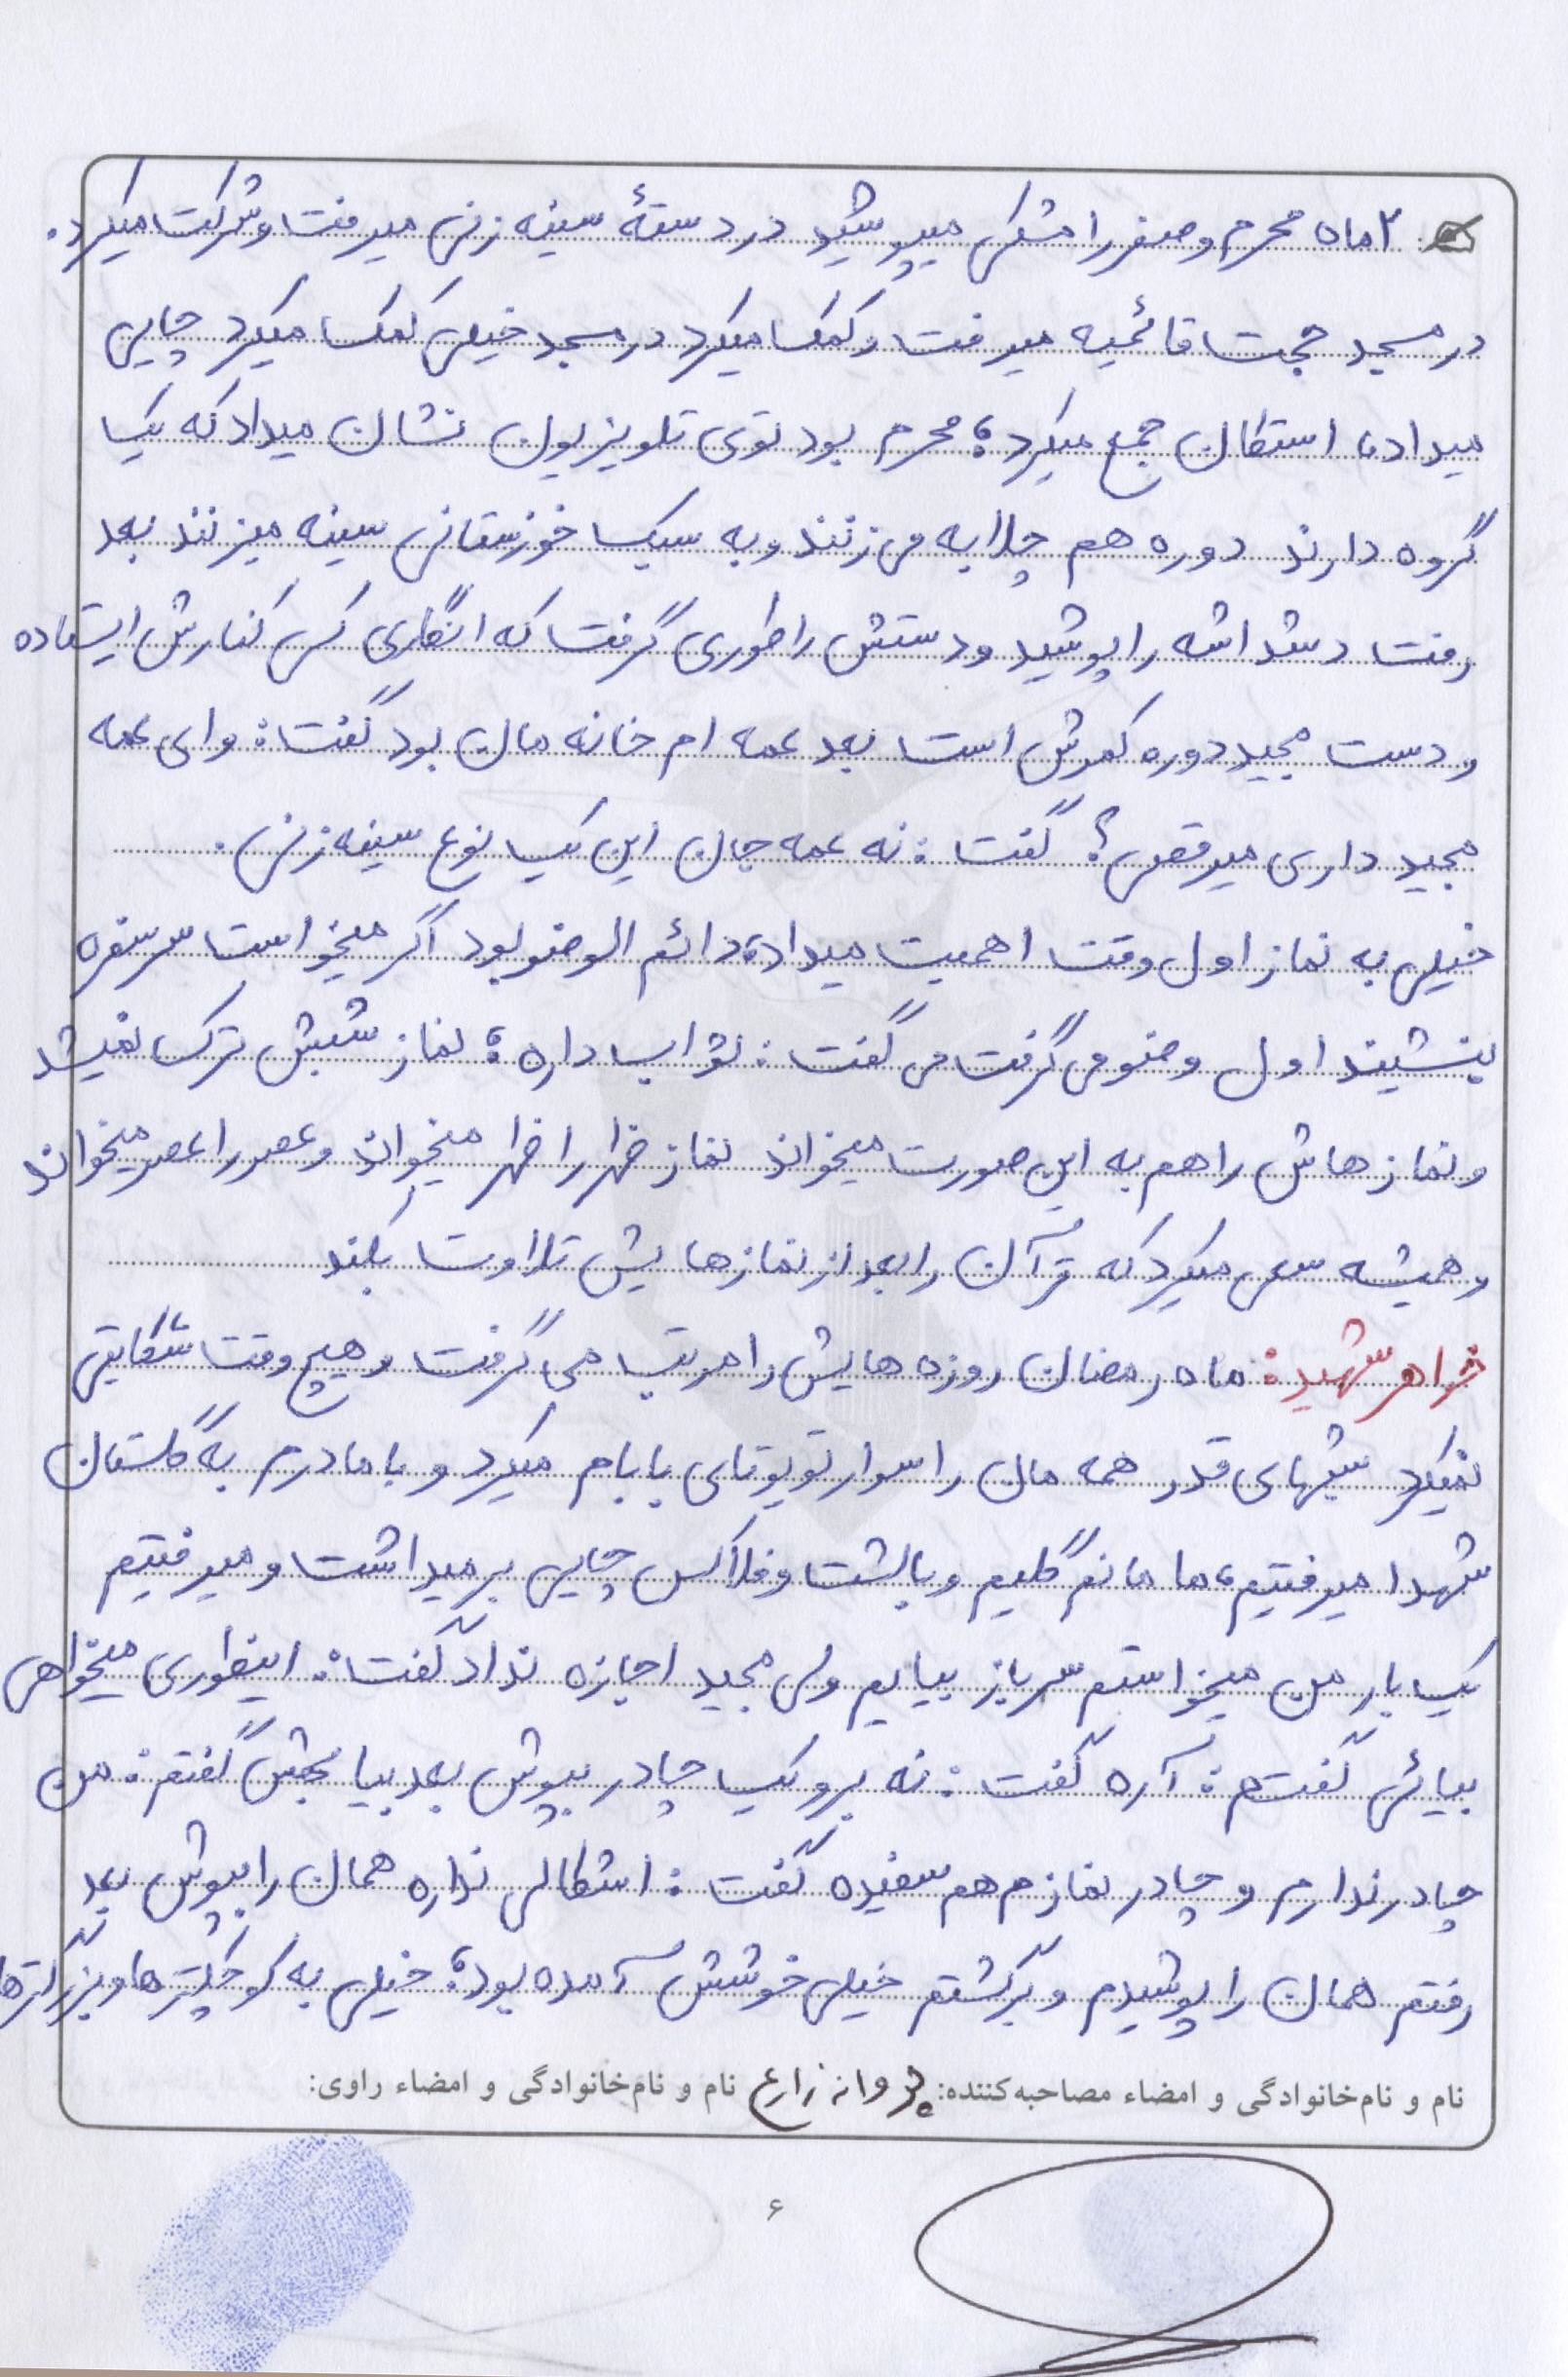 ۲ ماه محرم و صفر را مشکی میپوشید در دستهٔ سینه زنی میرفت و شرکت میکرد.
در مسجد حجت قائمیه میرفت و کمک میکرد در مسجد خیلی کمک میکرد چایی
میداد، استکان جمع میکرد؛ محرم بود توی تلویزیون نشان میداد که یک
گروه دارند دوره هم چلابه می زنند و به سبک خوزستانی سینه میزنند بعد
رفت دشداشه را پوشید و دستش را طوری گرفت که انگاری کسی کنارش ایستاده
و دست مجید دوره کمرش است بعد عمه ام خانه مان بود گفت: وای عمه
مجید داری میرقصی؟ گفت: نه عمه جان این یک نوع سینه زنی.
خیلی به نماز اول وقت اهمیت میداد، دائم الوضو بود اگر میخواست سر سفره
بنشیند اول وضو می گرفت می گفت: ثواب داره؛ نماز شبش ترک نمیشد
و نمازهاش را هم به این صورت میخواند نماز ظهر را ظهر میخواند و عصر را عصر میخواند
و همیشه سعی میکرد که قرآن را بعد از نمازهایش تلاوت بکند
خواهر شهید: ماه رمضان روزه هایش را مرتب می گرفت و هیچ وقت شکایتی
نمیکرد شبهای قدر همه مان را سوار تویوتای بابام میکرد و با مادرم به گلستان
شهدا میرفتیم، مامانم گلیم و بالشت و فلاکس چایی برمیداشت و میرفتیم
یک بار من میخواستم سرباز بیایم ولی مجید اجازه نداد گفت: اینطوری میخواهی
بیائی گفتم: آره گفت: نه برو یک چادر بپوش بعد بیا بهش گفتم: من
چادر ندارم و چادر نمازم هم سفیده گفت: اشکالی نداره همان را بپوش بعد
رفتم همان را پوشیدم و برگشتم خیلی خوشش آمده بود؛ خیلی به کوچکترها و بزرگترها
نام و نام‌خانوادگی و امضاء مصاحبه‌کننده: پروانه زارع نام و نام‌خانوادگی و امضاء راوی:
۶